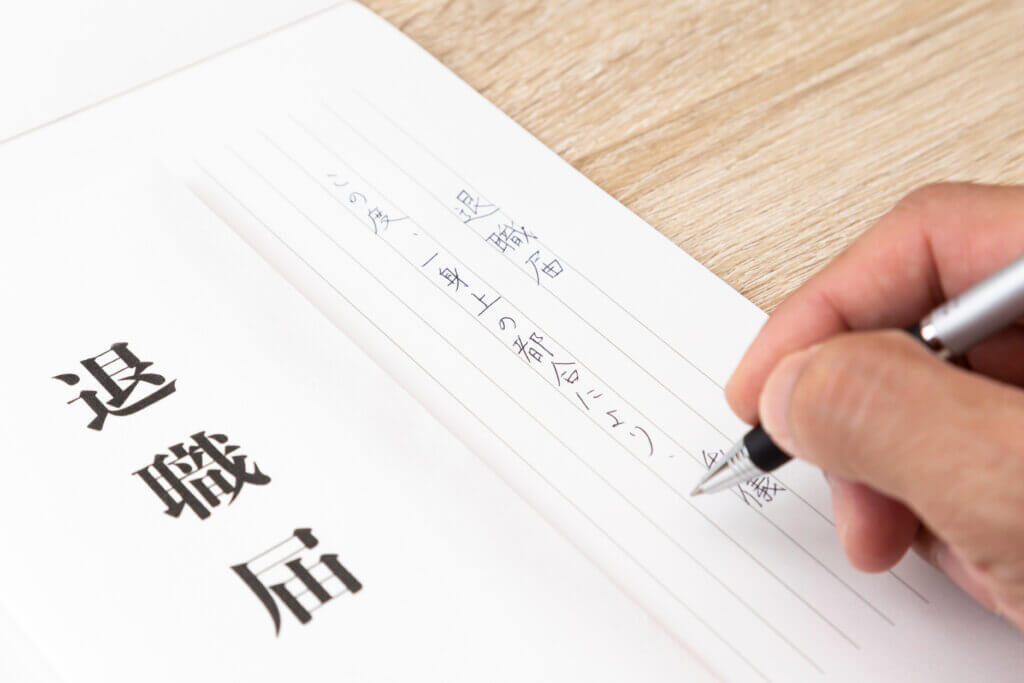 退職届
儀
この度、一身上の都合により、
退職届